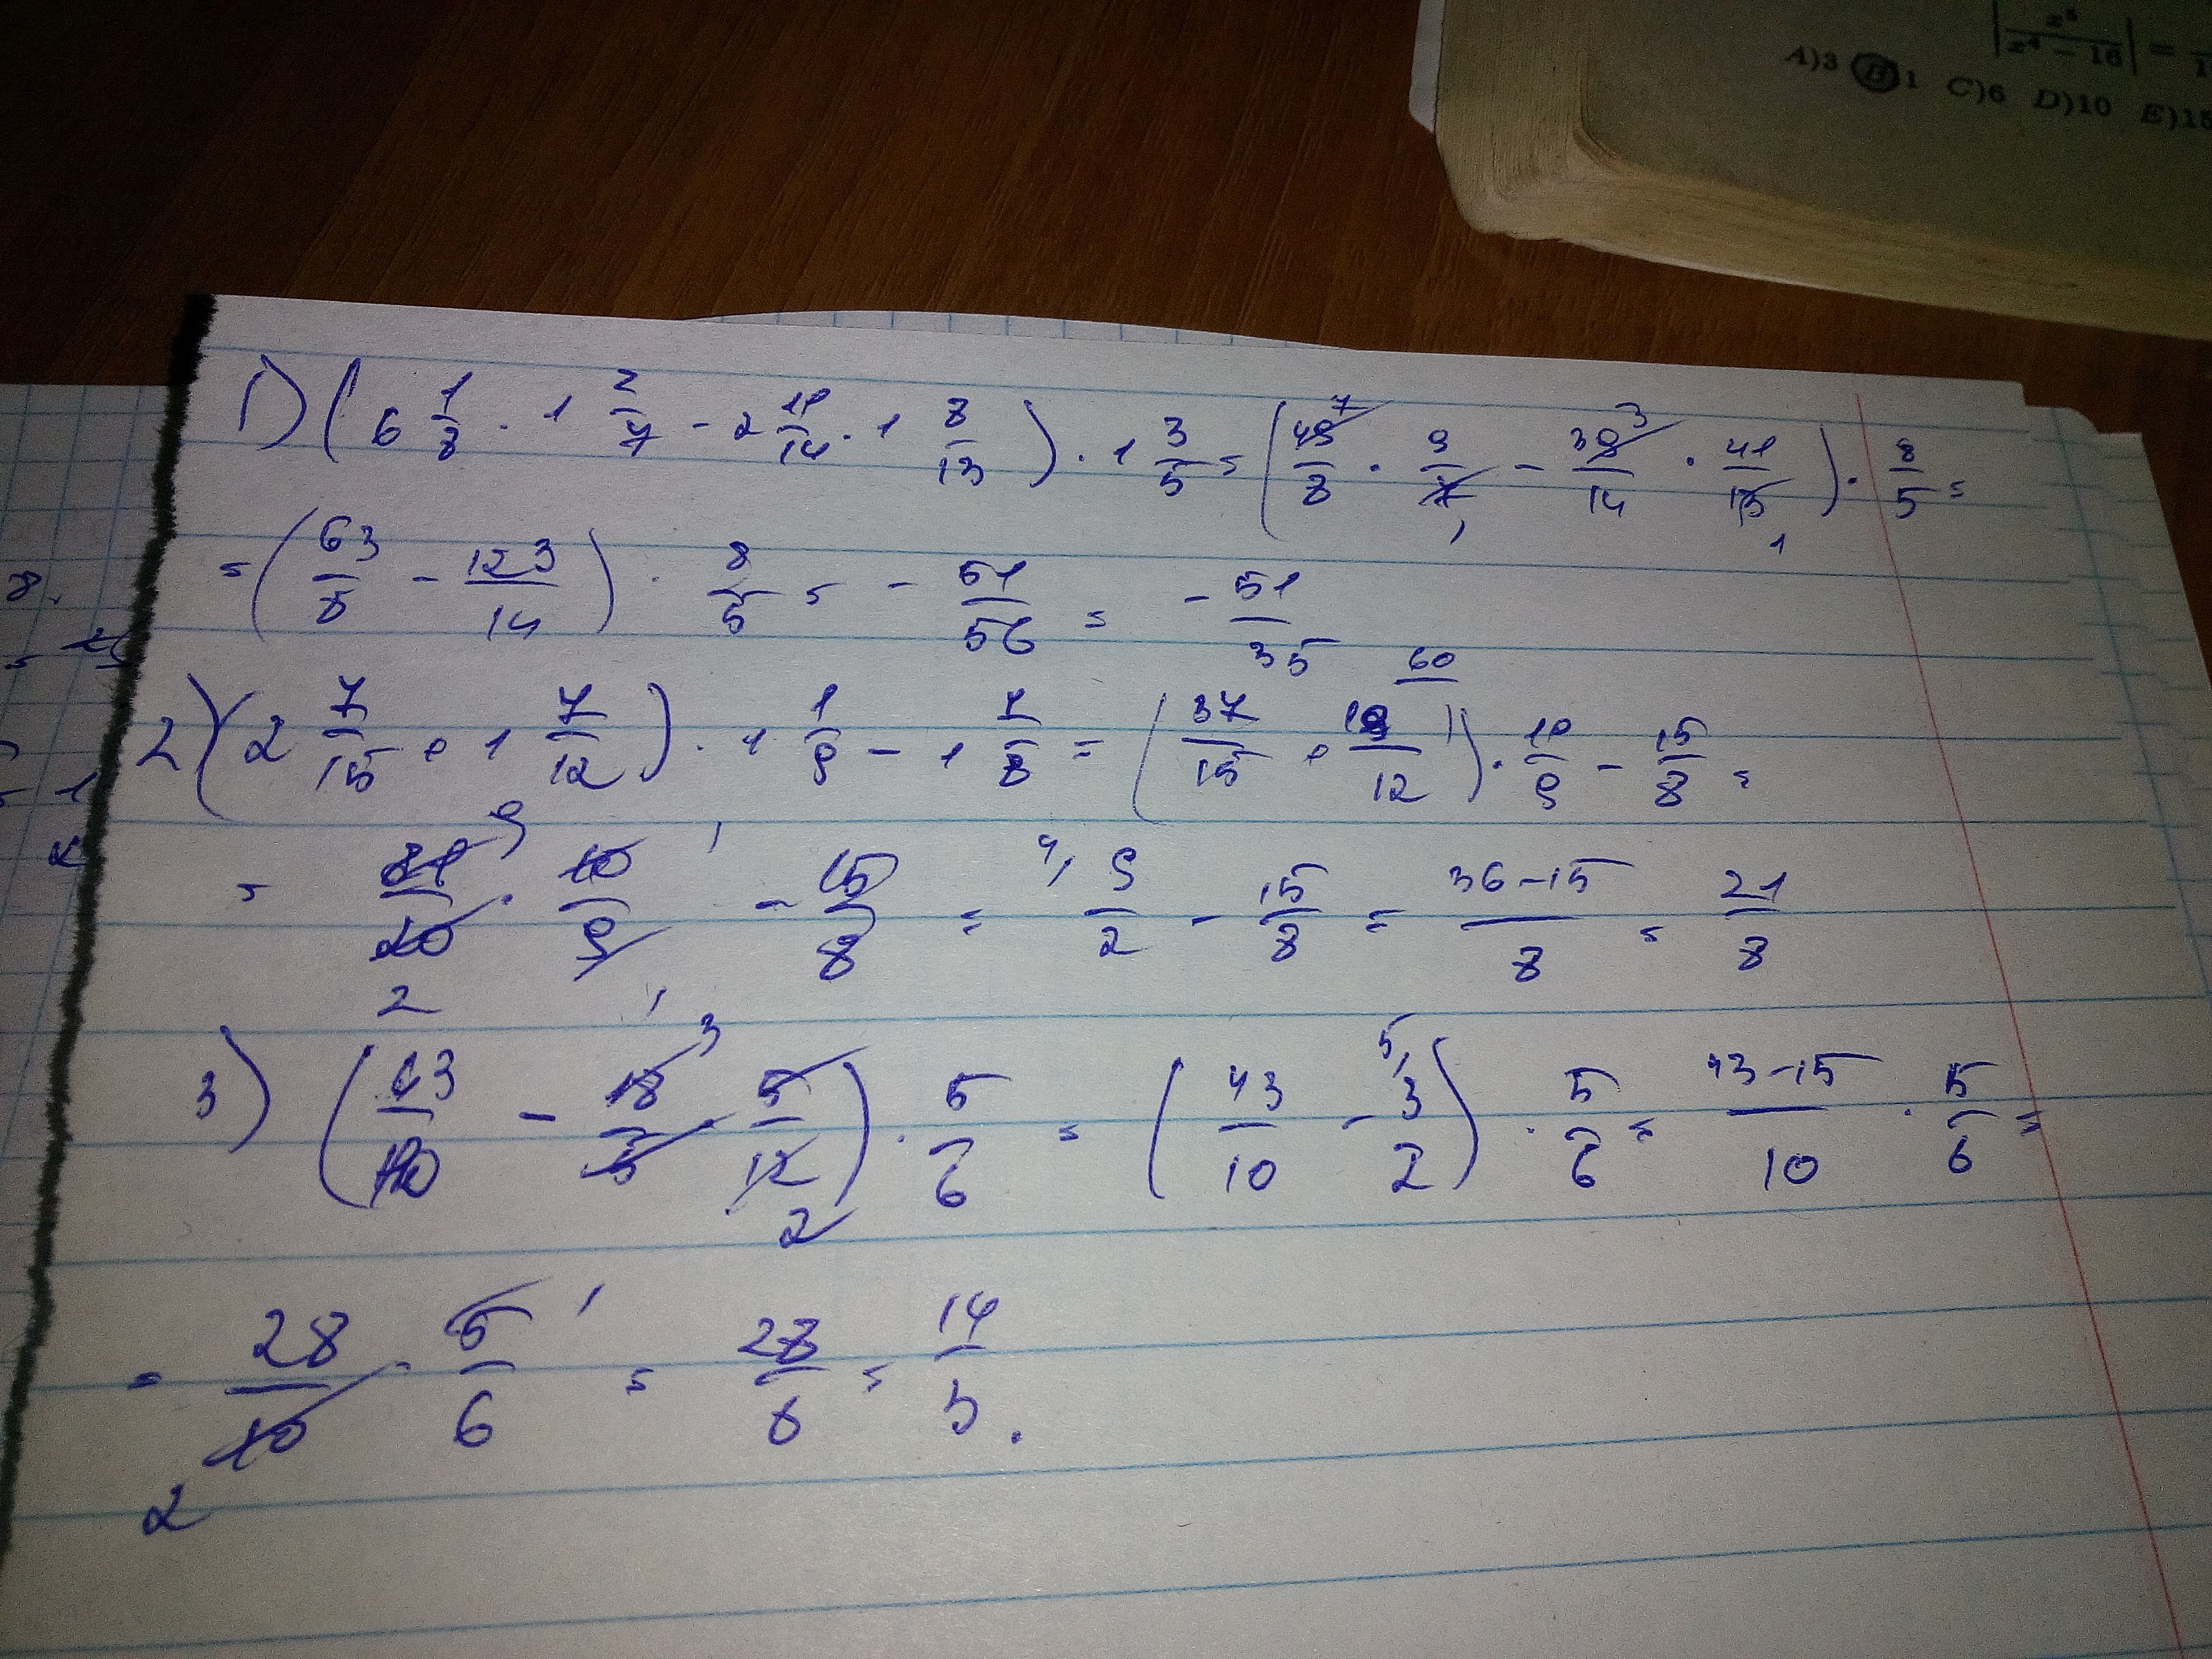 |x⁵/(x⁴ − 16)| =
A)3 B)1 C)6 D)10 E)15
1) (6 1/8 · 1 2/7 − 2 11/14 · 1 8/13) · 1 3/5 = (49/8 · 9/7 − 39/14 · 41/13) · 8/5 =
= (63/8 − 123/14) · 8/5 = − 51/56 = − 51/35
2) (2 7/15 + 1 7/12) · 1 1/9 − 1 7/8 = (37/15 + 19/12) · 10/9 − 15/8 =
= 81/20 · 10/9 − 15/8 = 9/2 − 15/8 = (36−15)/8 = 21/8
3) (43/10 − 18/5 · 5/12) · 5/6 = (43/10 − 3/2) · 5/6 = (43−15)/10 · 5/6 =
= 28/10 · 5/6 = 28/6 = 14/3.